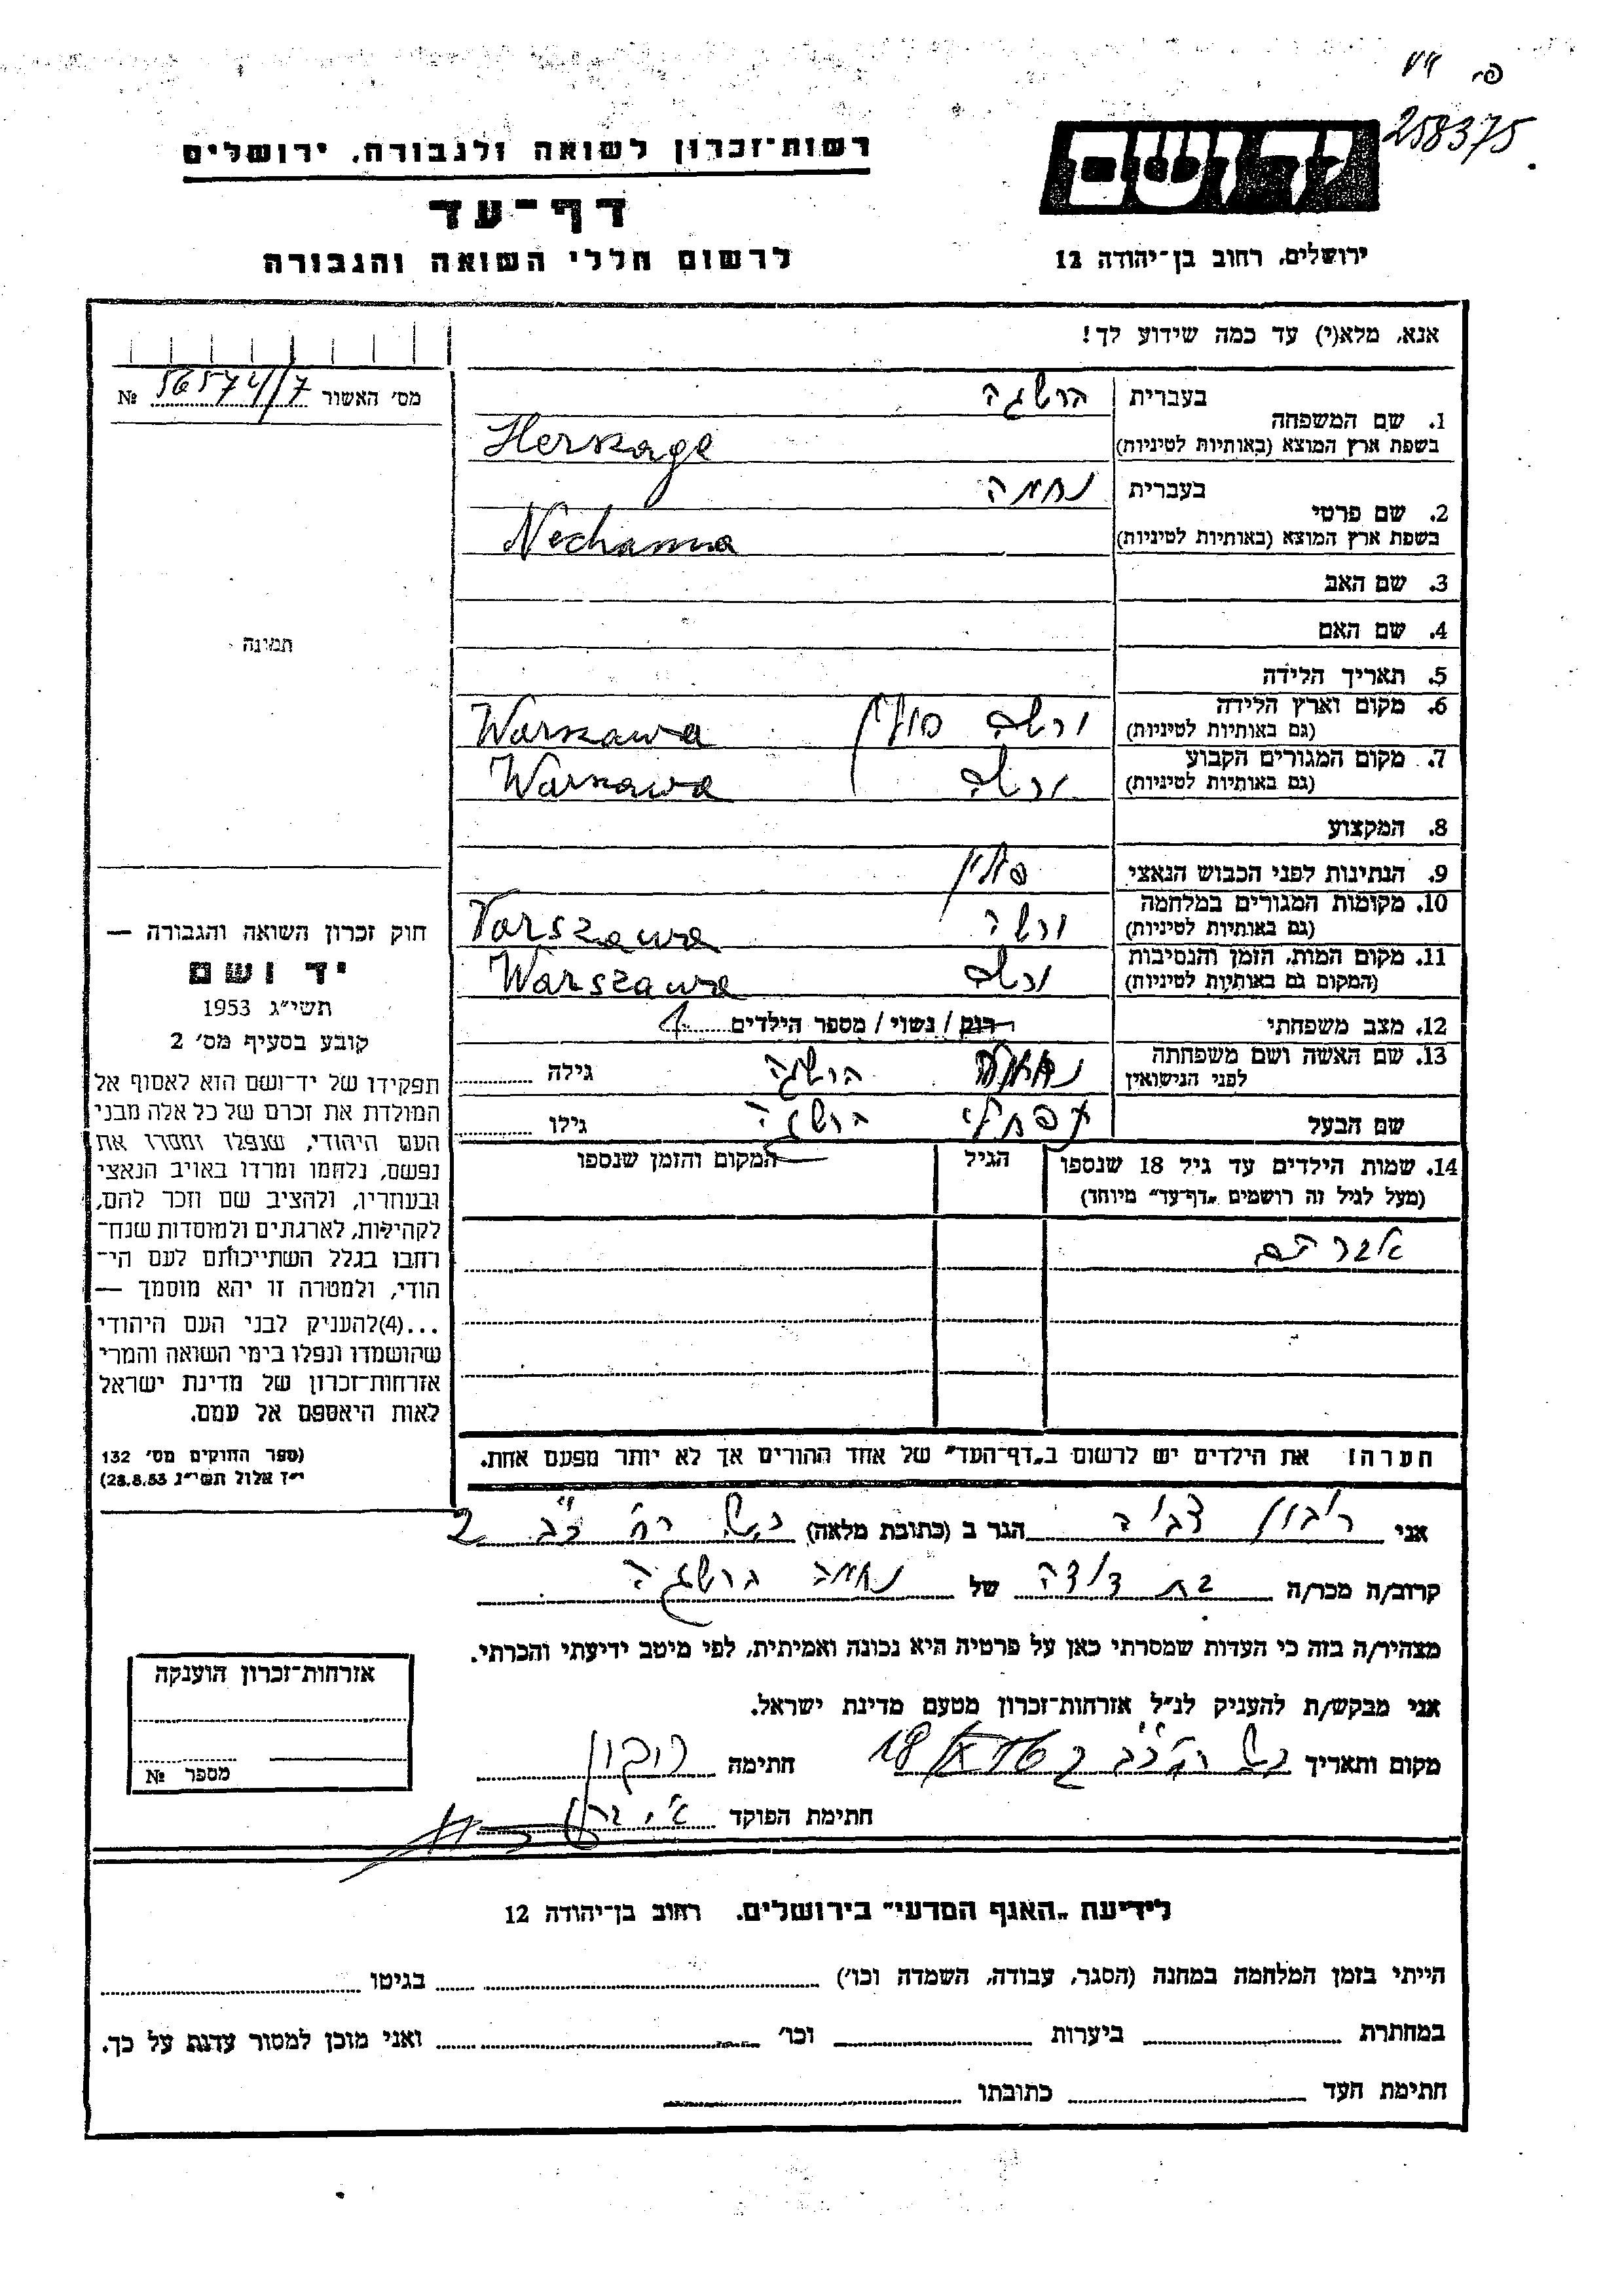 258375
רשות־זכרון לשואה ולגבורה, ירושלים
דף־עד
לרשום חללי השואה והגבורה
ידושם
ירושלים, רחוב בן־יהודה 12
אנא, מלא(י) עד כמה שידוע לך!
מס׳ האשור № 56574/7
1. שם המשפחה
בעברית הרשגה
בשפת ארץ המוצא (באותיות לטיניות) Herszage
2. שם פרטי
בעברית נחמה
בשפת ארץ המוצא (באותיות לטיניות) Nechama
3. שם האב
4. שם האם
5. תאריך הלידה
6. מקום וארץ הלידה
(גם באותיות לטיניות) ורשה פולין Warszawa
7. מקום המגורים הקבוע
(גם באותיות לטיניות) ורשה Warszawa
8. המקצוע
9. הנתינות לפני הכבוש הנאצי פולין
10. מקומות המגורים במלחמה
(גם באותיות לטיניות) ורשה Varszawa
11. מקום המות, הזמן והנסיבות
(המקום גם באותיות לטיניות) ורשה Warszawa
12. מצב משפחתי רוק / נשוי / מספר הילדים 1
13. שם האשה ושם משפחתה
לפני הנישואין הרשגה גילה
שם הבעל נפתלי הרשגה גילו
14. שמות הילדים עד גיל 18 שנספו
(מעל לגיל זה רושמים „דף־עד״ מיוחד)
הגיל
המקום והזמן שנספו
אברהם
הערה! את הילדים יש לרשום ב„דף־העד״ של אחד ההורים אך לא יותר מפעם אחת.
תמונה
חוק זכרון השואה והגבורה —
יד ושם
תשי״ג 1953
קובע בסעיף מס׳ 2
תפקידו של יד־ושם הוא לאסוף אל
המולדת את זכרם של כל אלה מבני
העם היהודי, שנפלו ומסרו את
נפשם, נלחמו ומרדו באויב הנאצי
ובעוזריו, ולהציב שם וזכר להם,
לקהילות, לארגונים ולמוסדות שנח־
רבו בגלל השתייכותם לעם הי־
הודי, ולמטרה זו יהא מוסמך —
...(4)להעניק לבני העם היהודי
שהושמדו ונפלו בימי השואה והמרי
אזרחות־זכרון של מדינת ישראל
לאות היאספם אל עמם.
(ספר החוקים מס׳ 132
י״ז אלול תשי״ג 28.8.53)
אני הגר ב (כתובת מלאה) 2
קרוב/ה מכר/ה בת דודה של נחמה הרשגה
מצהיר/ה בזה כי העדות שמסרתי כאן על פרטיה היא נכונה ואמיתית, לפי מיטב ידיעתי והכרתי.
אני מבקש/ת להעניק לנ״ל אזרחות־זכרון מטעם מדינת ישראל.
מקום ותאריך חתימה
חתימת הפוקד
אזרחות־זכרון הוענקה
מספר №
לידיעת „האגף המדעי״ בירושלים, רחוב בן־יהודה 12
הייתי בזמן המלחמה במחנה (הסגר, עבודה, השמדה וכו׳) בגיטו
במחתרת ביערות וכו׳ ואני מוכן למסור עדות על כך.
חתימת העד כתובתו